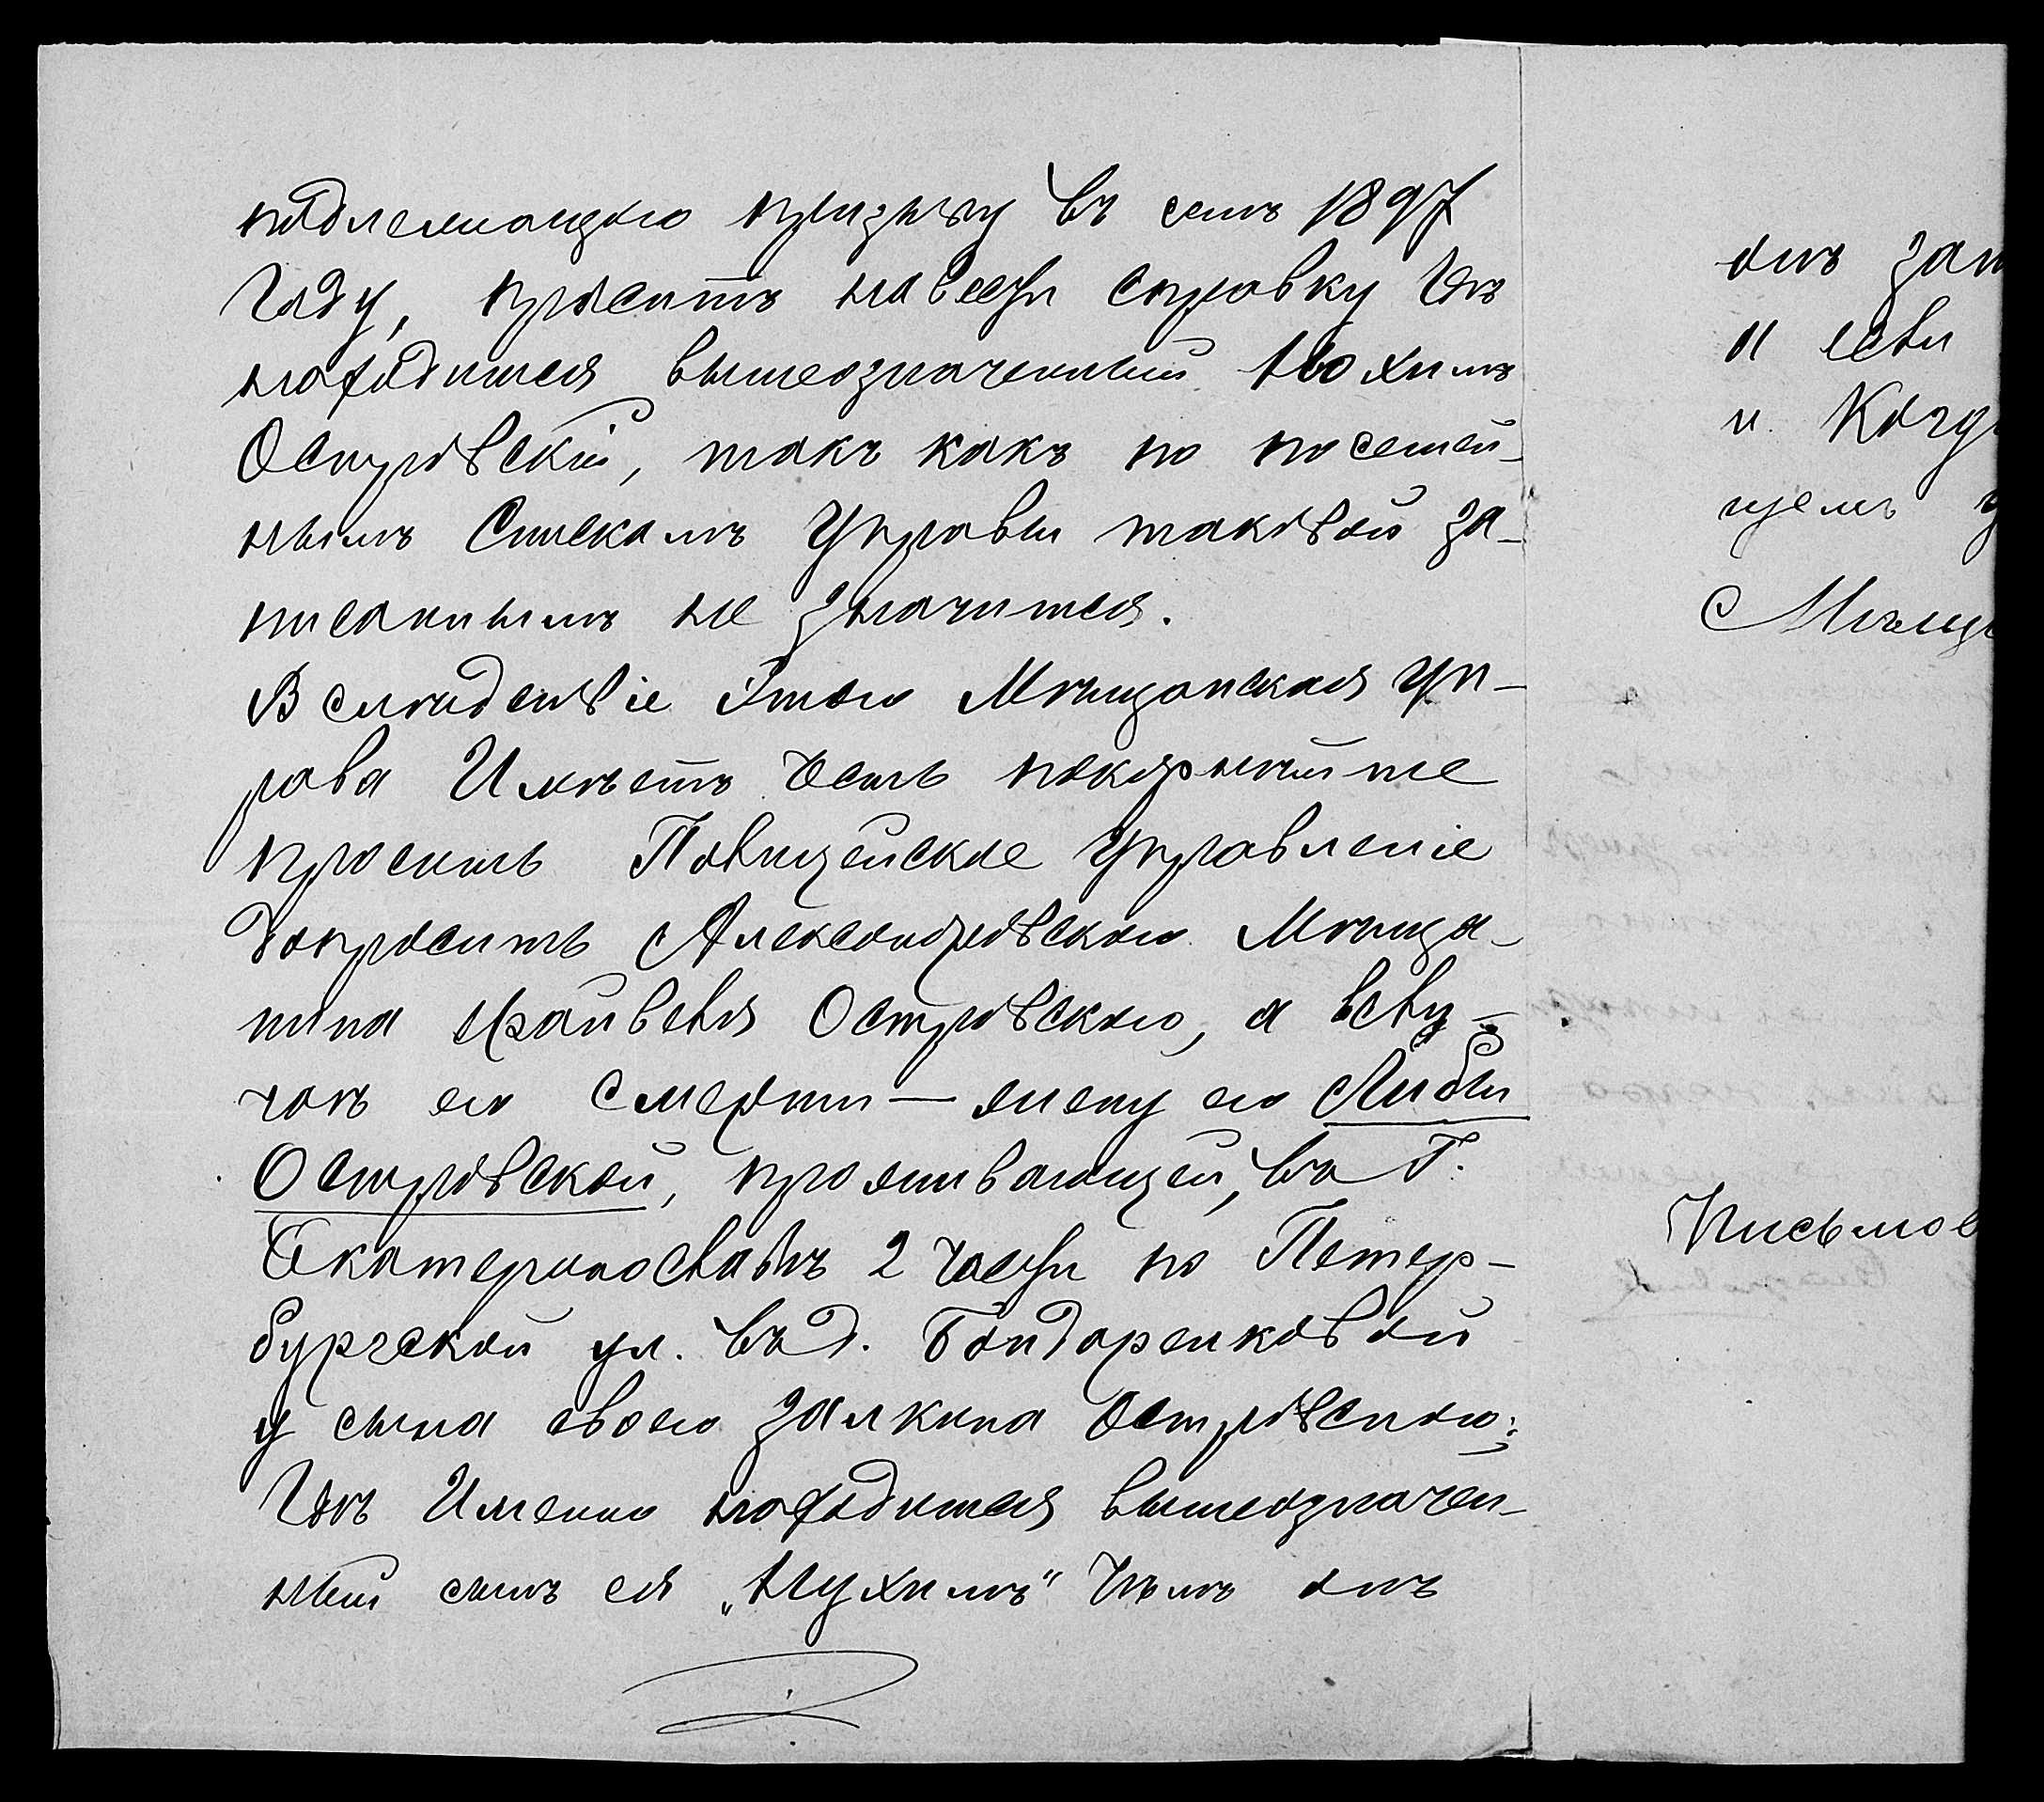 подлежащаго призыву въ семъ 1897
году, проситъ навести справку гдѣ
находится вышеозначенный Нохимъ
Островскій, такъ какъ по посемей-
нымъ Спискамъ Управы таковой за-
писаннымъ не значится.
Вслѣдствіе этого Мѣщанская Уп-
рава Имѣетъ честь покорнѣйше
просить Полицейское Управленіе
допросить Александровскаго Мѣща-
нина Островскаго, а вслу-
чаѣ его смерти — жену его Либы
Островской, проживающей, въ г.
Екатеринославѣ 2 части по Петер-
бургской ул. въ д. Бондаренковой
у сына своего Залкина Островскаго;
гдѣ Именно находится вышеозначен-
ный сынъ ея „Нухимъ“ чѣмъ онъ
онъ зан
и если
и Когд
щемъ
Мѣщ
Письмов